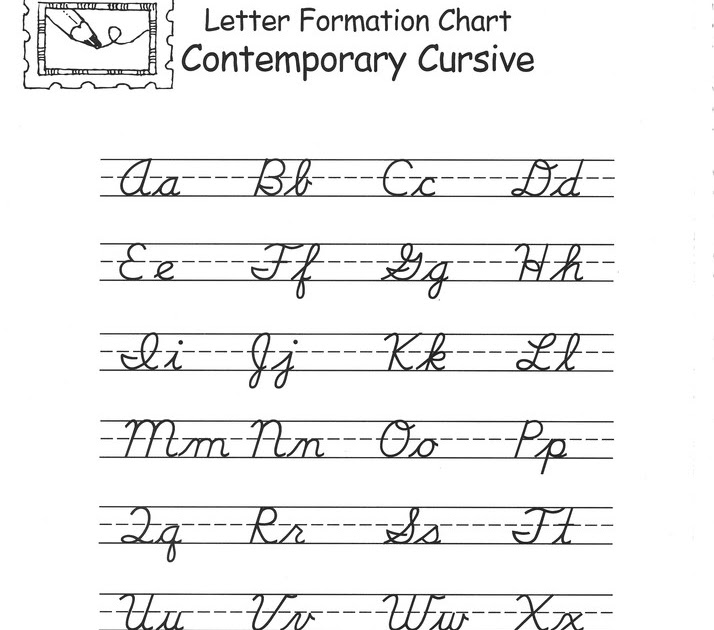 Letter Formation Chart
Contemporary Cursive
Aa Bb Cc Dd
Ee Ff Gg Hh
Ii Jj Kk Ll
Mm Nn Oo Pp
Qq Rr Ss Tt
Uu Vv Ww Xx